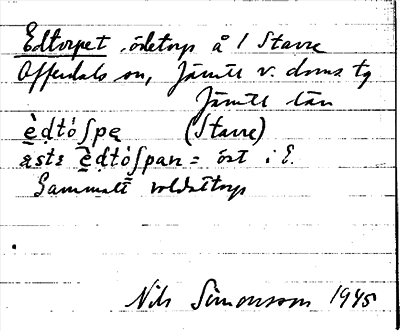 Edtorpet, ödetorp å 1 Stavre
Offerdals sn, Jämtl v. doms tg
Jämtl län
è̱dtó∫pę (Stavre)
a̱stɛ è̱dtó∫pan = öst i E.
Gammalt soldattorp
Nils Simonsson 1945